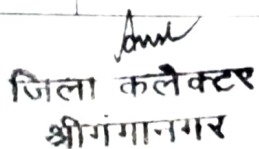 जिला कलेक्टर
श्रीगंगानगर